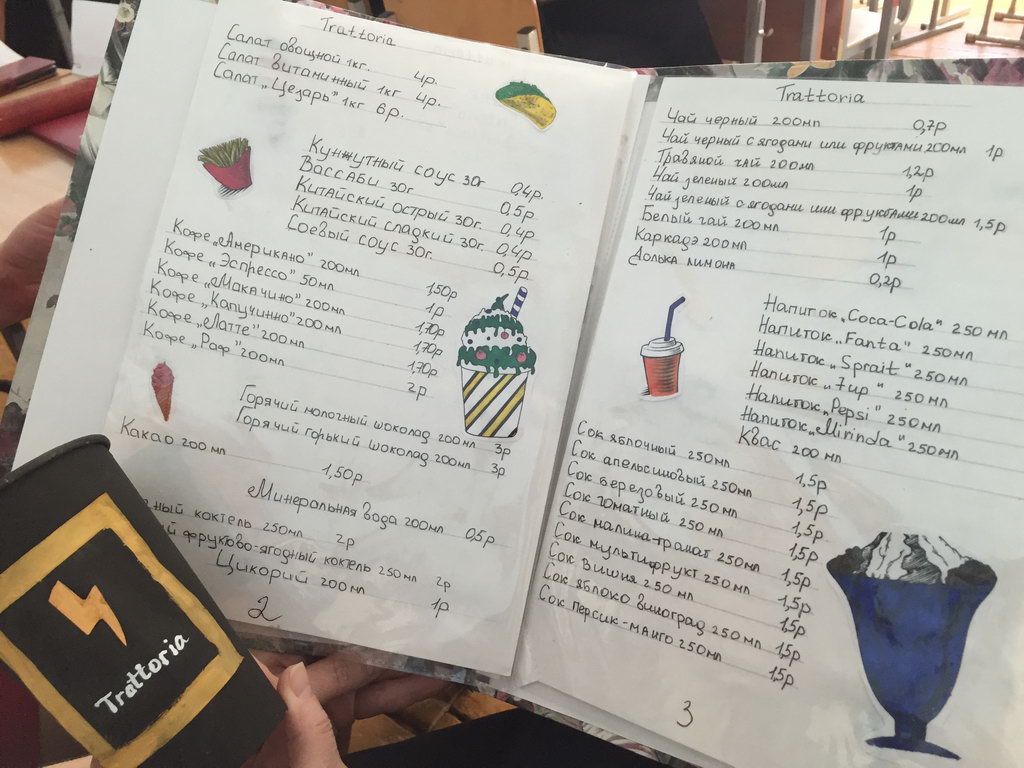 Trattoria
Салат овощной 1кг. 4р.
Салат витаминный 1кг 4р.
Салат „Цезарь" 1кг 6р.
Кунжутный соус 30г 0,4р.
Вассаби 30г 0,5р
Китайский острый 30г. 0,4р
Китайский сладкий 30г. 0,4р
Соевый соус 30г. 0,5р
Кофе „Американо" 200мл 1,50р
Кофе „Эспрессо" 50мл 1р
Кофе „Макачино" 200мл 1,70р
Кофе „Капучинно" 200мл 1,70р
Кофе „Латте" 200мл 1,70р
Кофе „Раф" 200мл 2р
Горячий молочный шоколад 200мл 3р
Горячий горький шоколад 200мл 3р
Какао 200 мл 1,50р
Минеральная вода 200мл 0,5р
коктель 250мл 2р
фруково-ягодный коктель 250 мл 2р
Цикорий 200мл 1р
2
Trattoria
Trattoria
Чай черный 200мл 0,7р
Чай черный с ягодани или фруктами 200мл 1р
Травяной чай 200мл 1,2р
Чай зеленый 200мл 1р
Чай зеленый с ягодани или фруктами 200мл 1,5р
Белый чай 200мл 1р
Каркадэ 200мл 1р
Долька лимона 0,2р
Напиток „Coca-Cola" 250 мл
Напиток „Fanta" 250мл
Напиток „Sprait" 250мл
Напиток „7up" 250 мл
Напиток „Pepsi" 250мл
Напиток „Mirinda" 250мл
Квас 200 мл
Сок яблочный 250мл 1,5р
Сок апельсиновый 250мл 1,5р
Сок березовый 250мл 1,5р
Сок томатный 250 мл 1,5р
Сок малина-гранат 250мл 1,5р
Сок мультифрукт 250мл 1,5р
Сок вишня 250 мл 1,5р
Сок яблоко виноград 250мл 1,5р
Сок персик-манго 250мл 1,5р
3